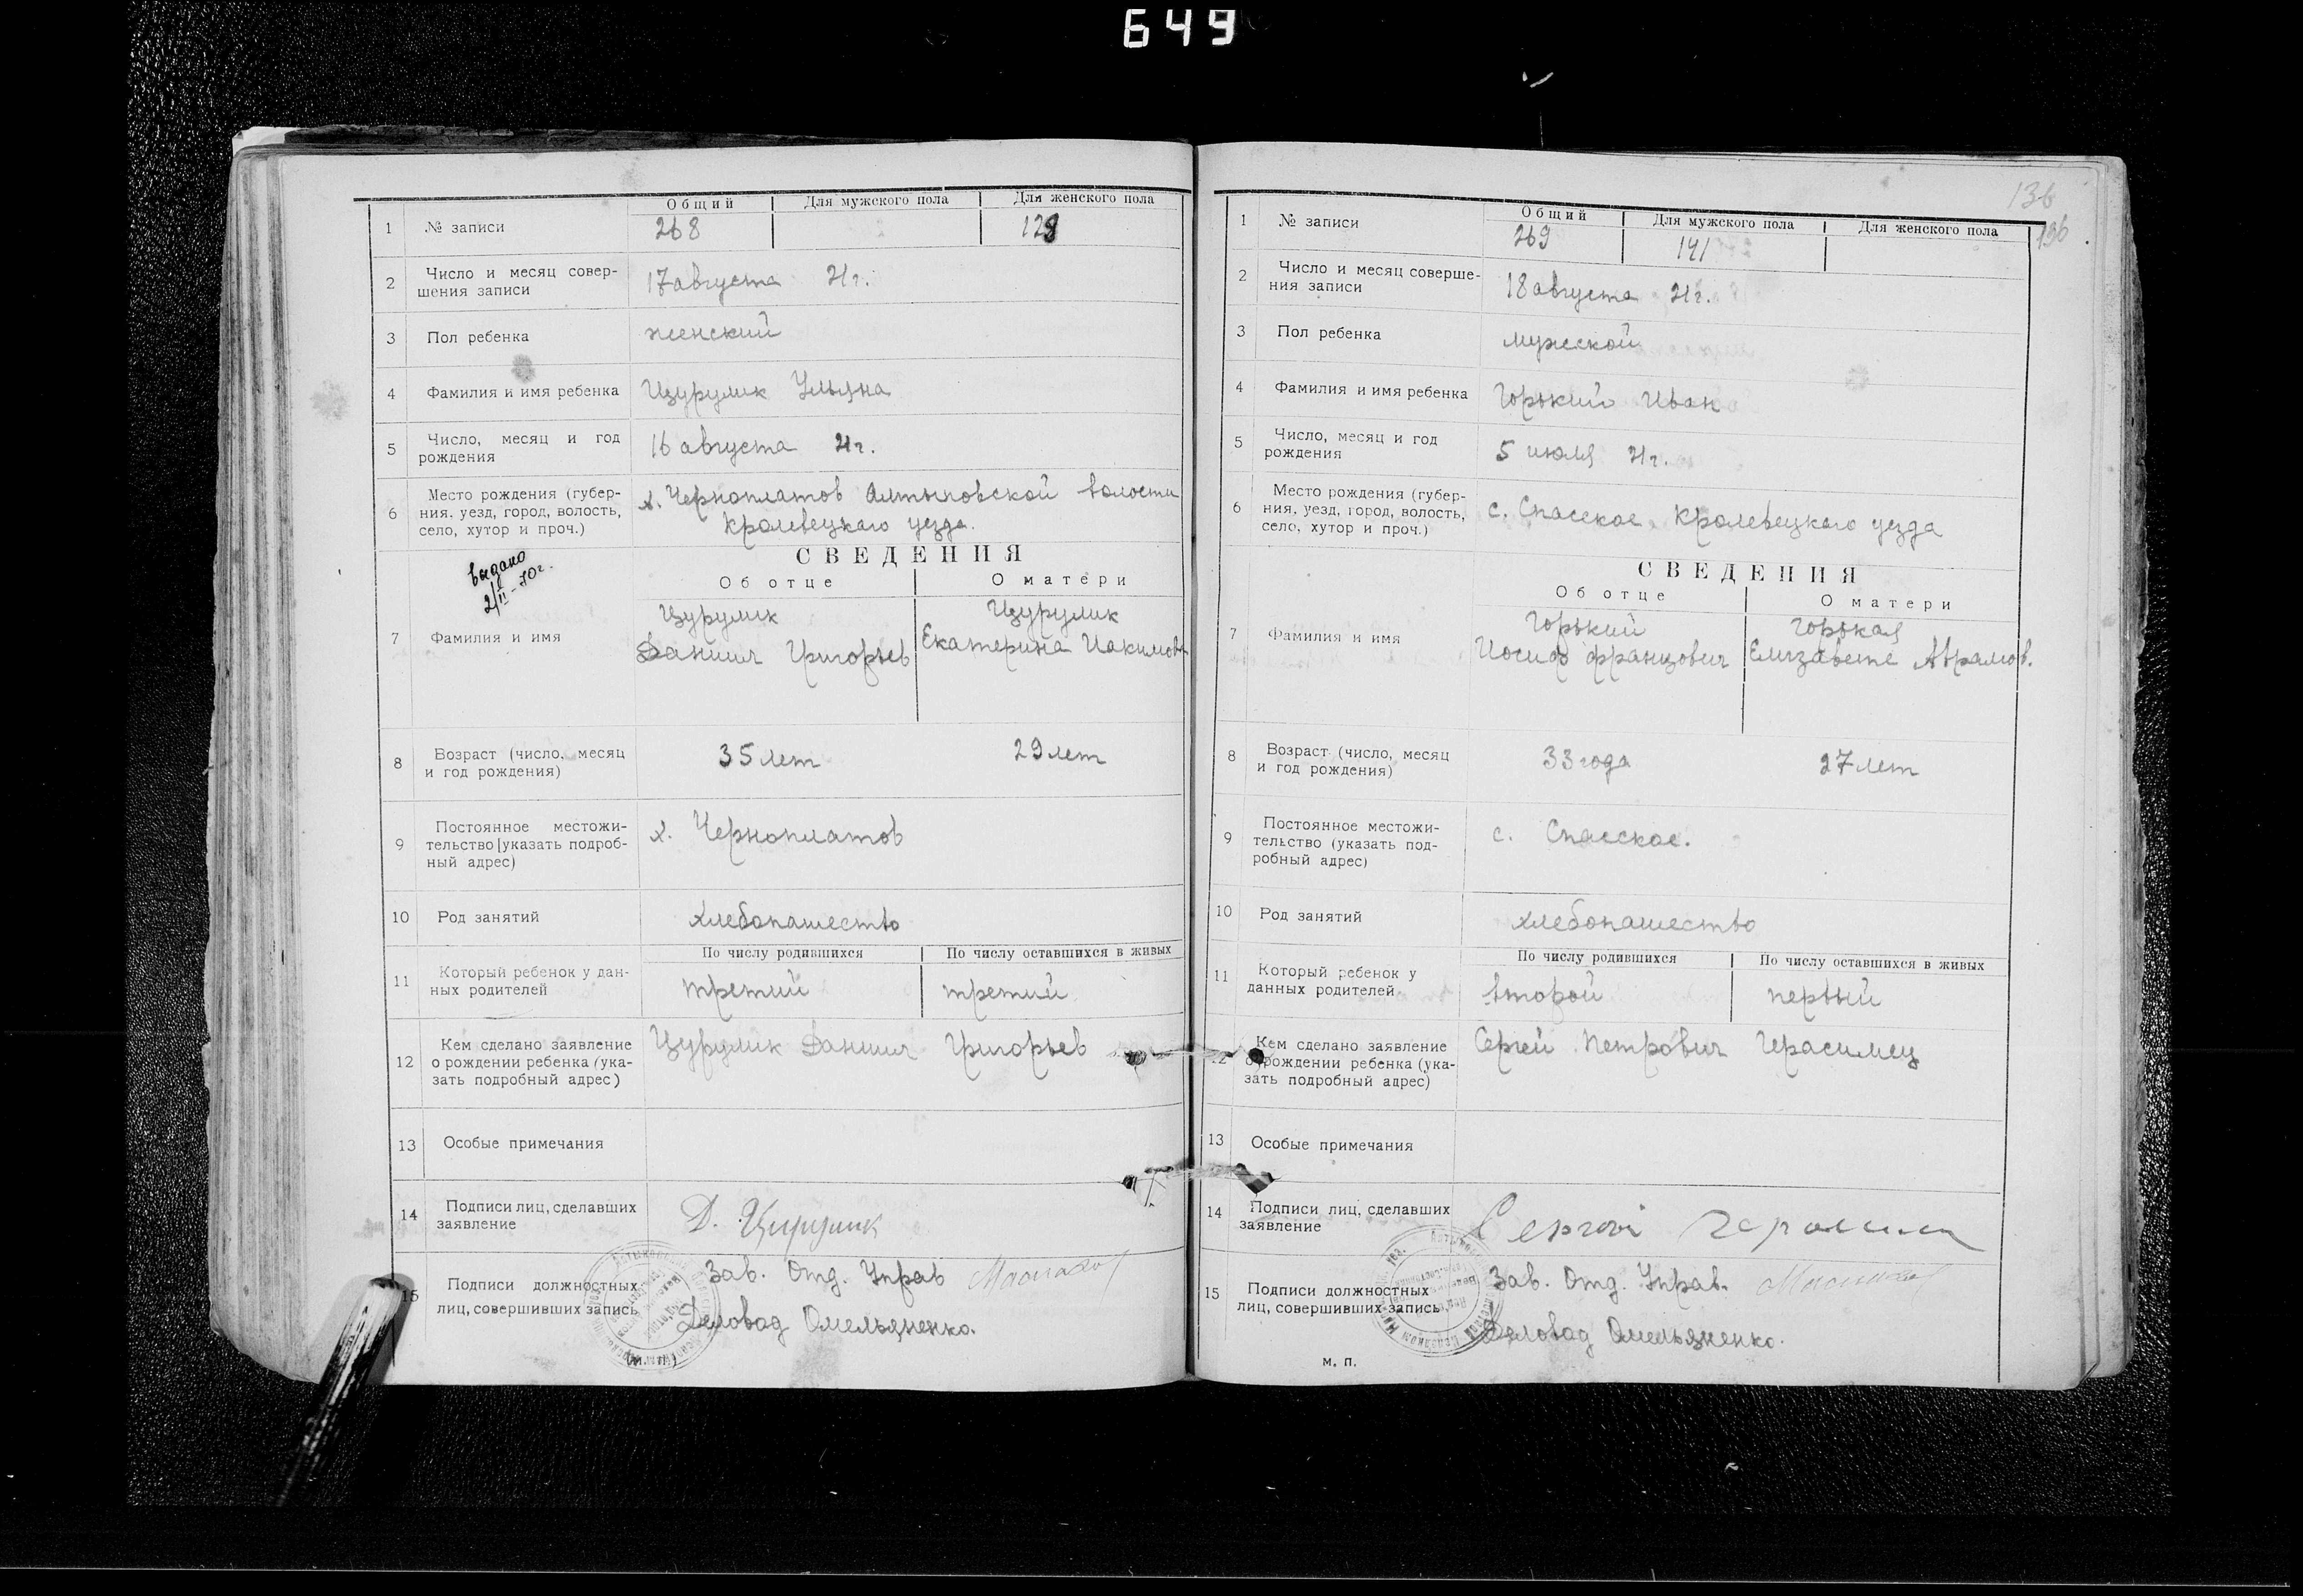 649
Общий Для мужского пола Для женского пола
1 № записи 268 128
2 Число и месяц совер-
шения записи 17 августа 21 г.
3 Пол ребенка женский
4 Фамилия и имя ребенка Цурулик Ульяна
5 Число, месяц и год
рождения 16 августа 21 г.
6 Место рождения (губер-
ния, уезд, город, волость,
село, хутор и проч.)
х. Черноплатов Алтыновской волости
Кролевецкаго уезда.
СВЕДЕНИЯ
Об отце О матери
выдано
2/II-70г.
7 Фамилия и имя
Цурулик
Даниил Григорьев
Цурулик
Екатерина Иакимовн
8 Возраст (число, месяц
и год рождения) 35 лет 29 лет
9 Постоянное местожи-
тельство [указать подроб-
ный адрес) х. Черноплатов
10 Род занятий хлебопашество
По числу родившихся По числу оставшихся в живых
11 Который ребенок у дан-
ных родителей третий третий
12 Кем сделано заявление
о рождении ребенка (ука-
зать подробный адрес)
Цурулик Даниил Григорьев
13 Особые примечания
14 Подписи лиц, сделавших
заявление Д. Цурулик
15 Подписи должностных
лиц, совершивших запись
Зав. Отд. Управ
Деловод Омельяненко.
(м. п.)
136
136
Общий Для мужского пола Для женского пола
1 № записи 269 141
2 Число и месяц соверше-
ния записи 18 августа 21 г.
3 Пол ребенка мужской
4 Фамилия и имя ребенка Горький Иван
5 Число, месяц и год
рождения 5 июля 21 г.
6 Место рождения (губер-
ния, уезд, город, волость,
село, хутор и проч.)
с. Спасское Кролевецкаго уезда
СВЕДЕНИЯ
Об отце О матери
7 Фамилия и имя
Горький
Иосиф Францович
Горькая
Елизавете Аврамов.
8 Возраст (число, месяц
и год рождения) 33 года 27 лет
9 Постоянное местожи-
тельство (указать под-
робный адрес) с. Спасское.
10 Род занятий хлебопашество
По числу родившихся По числу оставшихся в живых
11 Который ребенок у
данных родителей второй первый
12 Кем сделано заявление
о рождении ребенка (ука-
зать подробный адрес)
Сергей Петрович Герасимец
13 Особые примечания
14 Подписи лиц, сделавших
заявление
15 Подписи должностных
лиц, совершивших запись
Зав. Отд. Управ.
Деловод Омельяненко.
м. п.